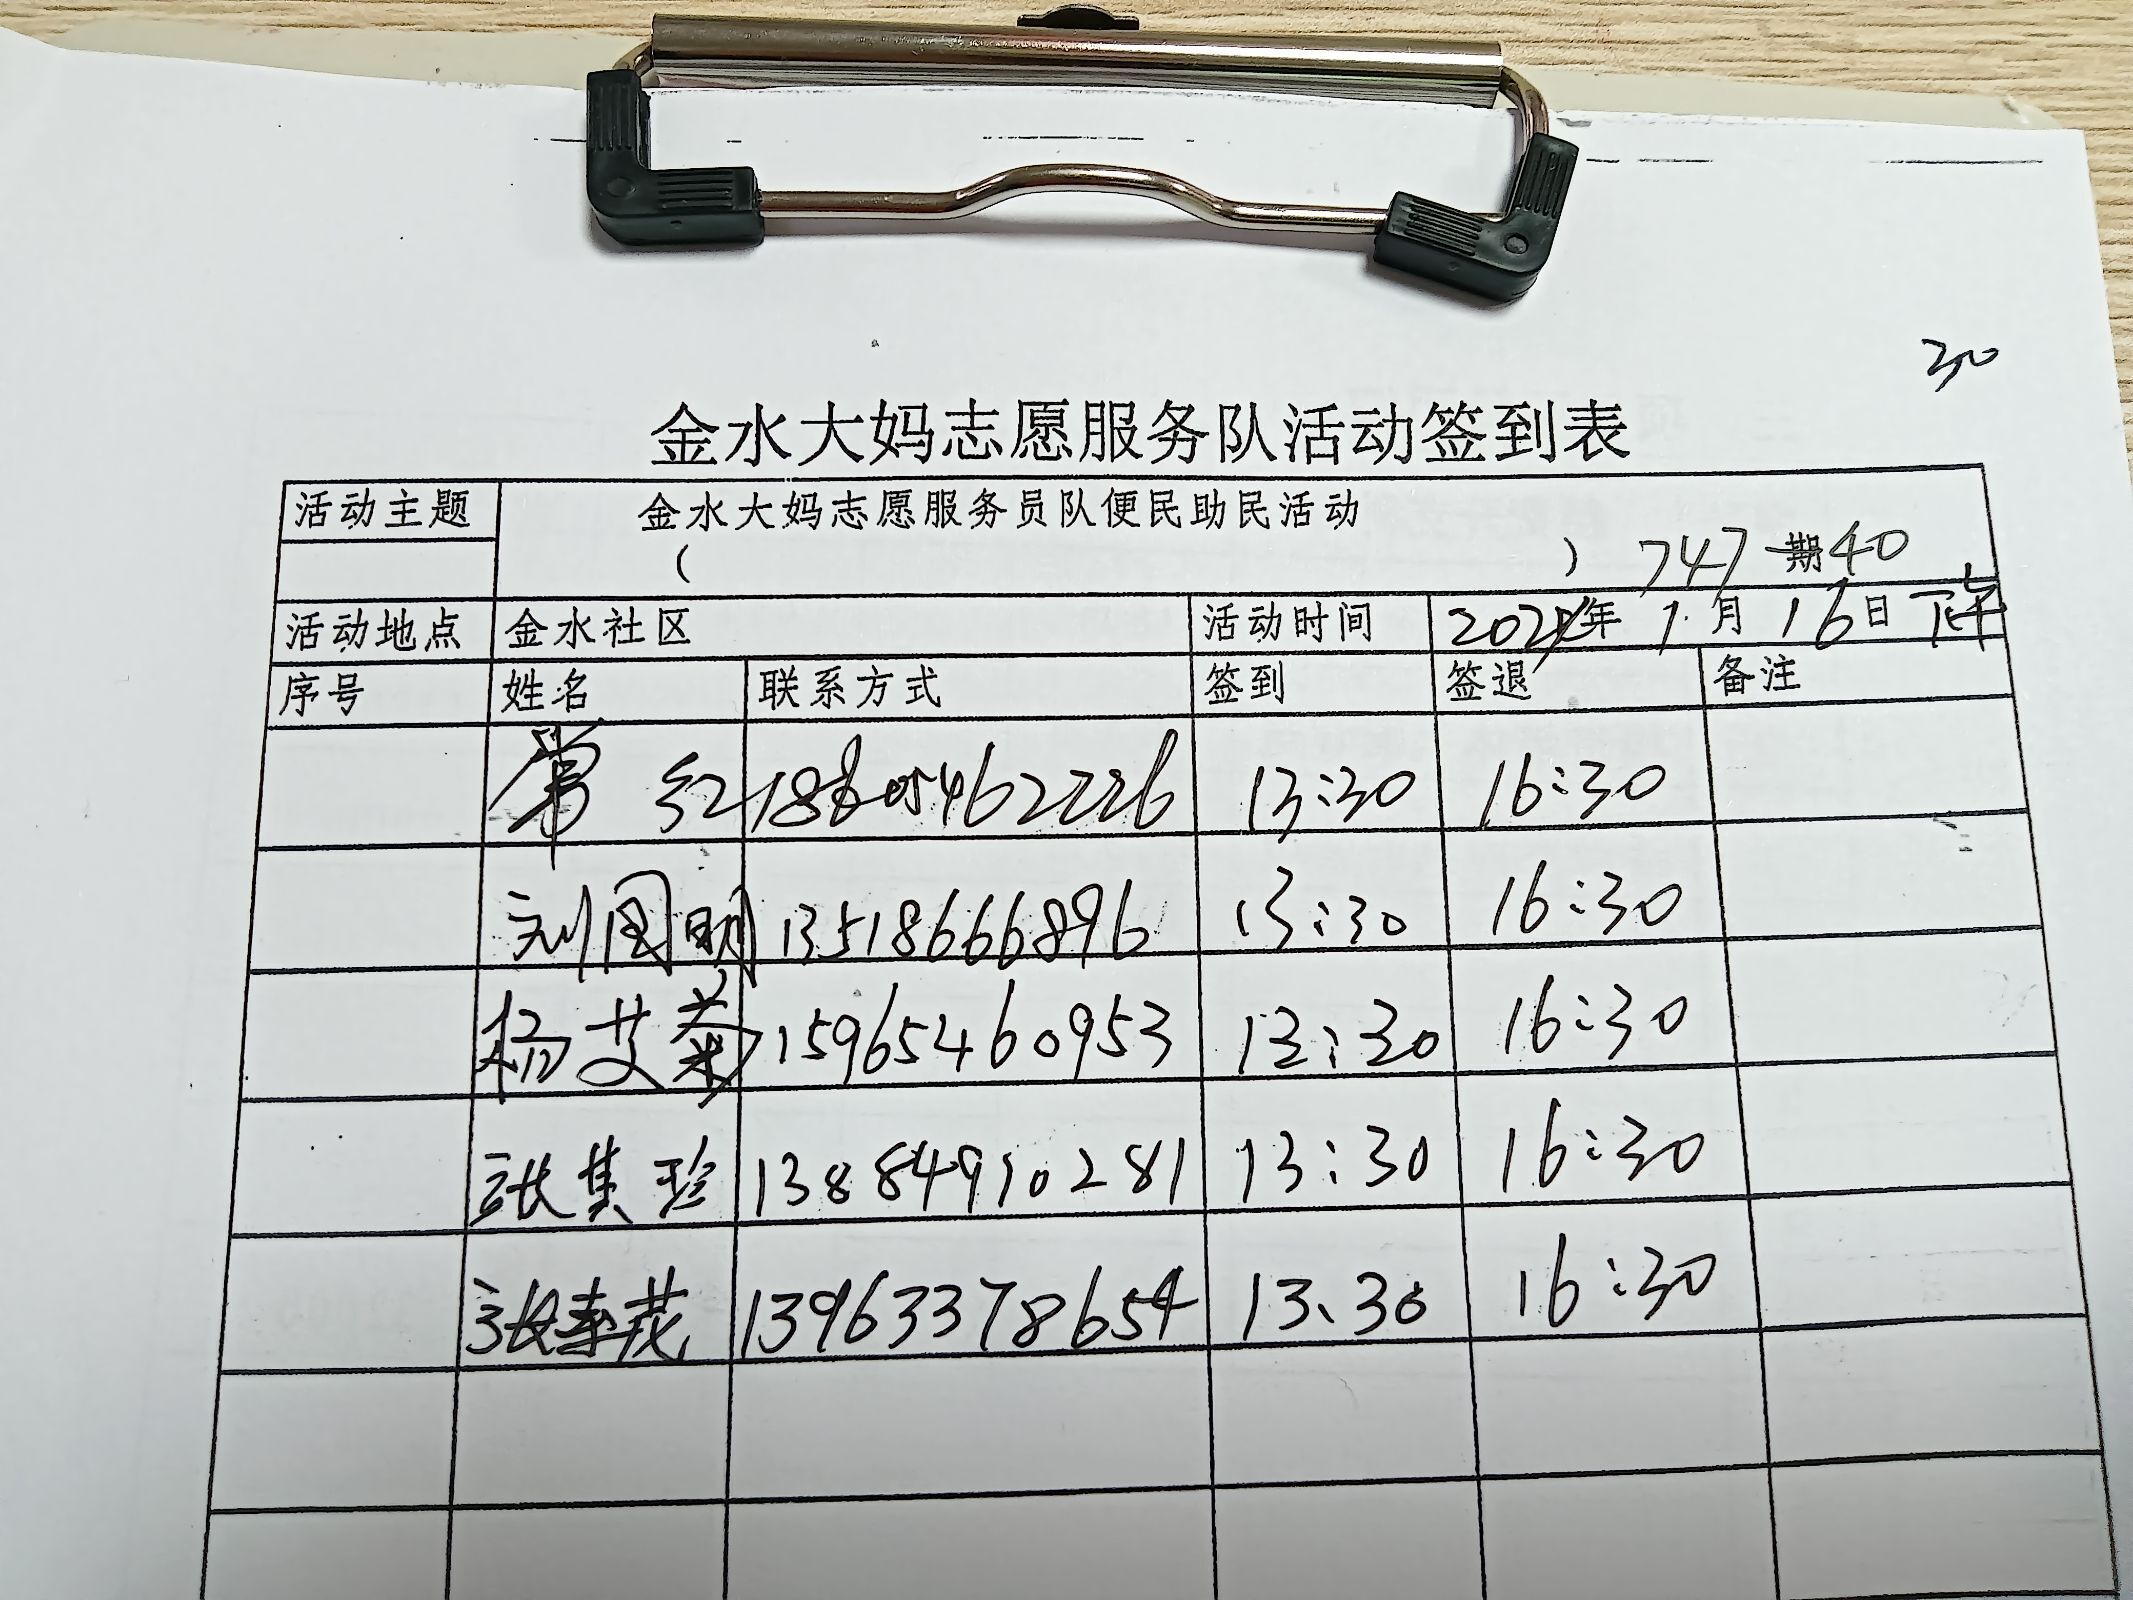 30
金水大妈志愿服务队活动签到表
活动主题 金水大妈志愿服务员队便民助民活动
( ) 747期40
活动地点 金水社区 活动时间 202年 1月16日下午
序号 姓名 联系方式 签到 签退 备注
常红 18605462226 13:30 16:30
刘国明 13518666896 13:30 16:30
杨艾菊 15965460953 13:30 16:30
张集珍 13884910281 13:30 16:30
张茂 13963378654 13:30 16:30